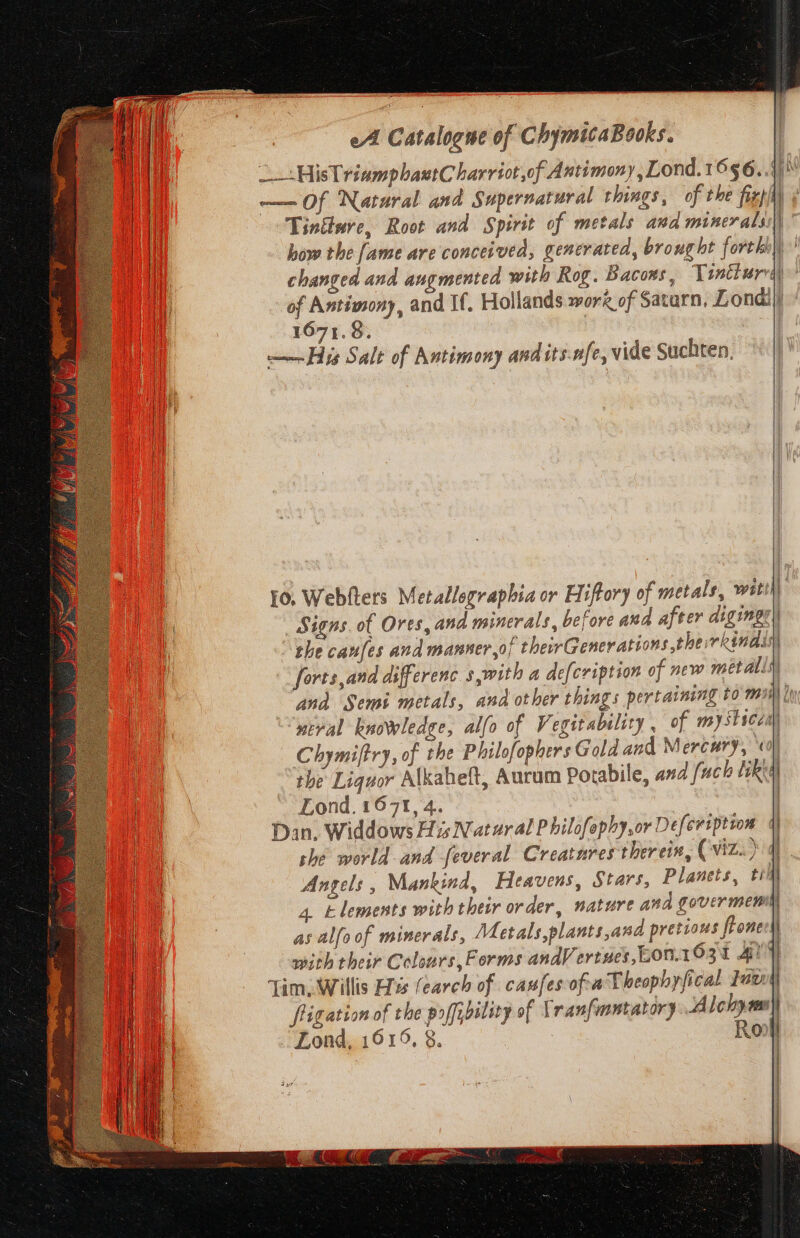 A Catalogue of ChymicaBooks.
——HisTriumphautCharriot,of Antimony, Lond.1656.
——Of Natural and Supernatural things, of the
Tincture, Root and Spirit of metals and minerals
how the ſame are conceived, generated, brought forth
changed and augmented with Rog. Bacons, Tinctur
of Antimony, and If. Hollands work of Saturn, Lond
1671. 8.
——His Salt of Antimony and its uſe, vide Suchten,
Io. Webſters Metallographia or Hiſtory of metals, with
Signs of Ores, and minerals, before and after diging
the cauſes and manner, of theirGenerations, their kinds
ſorts, and differenc s, with a deſcription of new metalls
and Semi metals, and other things pertaining to mi
neral knowledge, alſo of Vegitability, of mystica
Chymiſtry, of the Philoſophers Gold and Mercury,
the Liquor Alkaheſt, Aurum Potabile, and ſuch like
Lond. 1671, 4.
Dan. Widdows His Natural Philoſophy, or Deſcription
the world and ſeveral Creatures therein, (viz.)
Angels, Mankind, Heavens, Stars, Planets,
4 Elements with their order, nature and goverment
as alſo of minerals, Metals, plants, and pretious ſtones
with their Colours, Forms and Vertues, Lon. 1631 4
Tim. Willis His ſearch of cauſes of a Theophyſical Inve
ſtigation of the poſſibility of Tranſmntatory Alchym
Lond, 1616, 8.